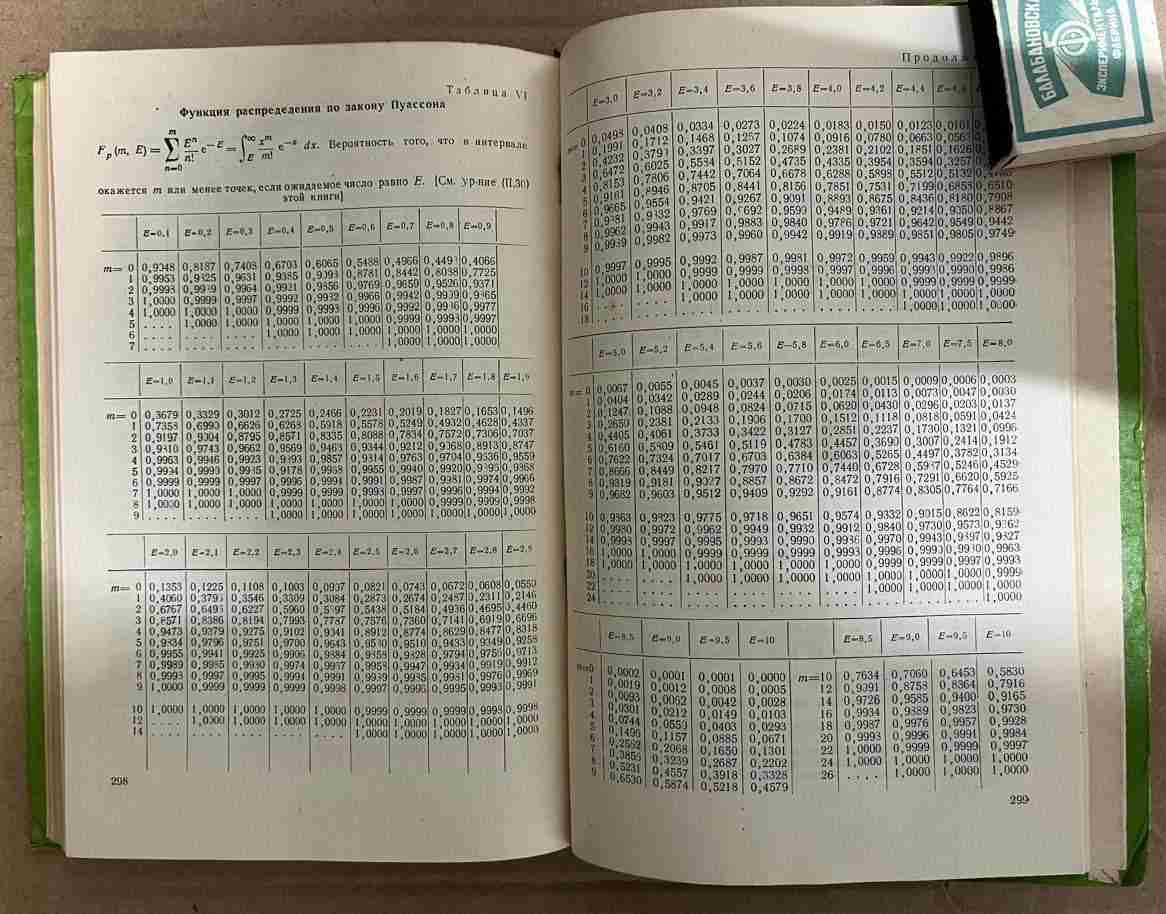 Таблица VI
Функция распределения по закону Пуассона
F_p (m, E) = ∑ Eⁿ/n! e⁻ᴱ = ∫ xᵐ/m! e⁻ˣ dx. Вероятность того, что в интервале
окажется m или менее точек, если ожидаемое число равно E. [См. ур-ние (II.30)
этой книги]
E=0,1 E=0,2 E=0,3 E=0,4 E=0,5 E=0,6 E=0,7 E=0,8 E=0,9
m= 0 0,9048 0,8187 0,7408 0,6703 0,6065 0,5488 0,4966 0,4493 0,4066
1 0,9953 0,9825 0,9631 0,9385 0,9098 0,8781 0,8442 0,8088 0,7725
2 0,9998 0,9989 0,9964 0,9921 0,9856 0,9769 0,9659 0,9526 0,9371
3 1,0000 0,9999 0,9997 0,9992 0,9982 0,9966 0,9942 0,9909 0,9865
4 1,0000 1,0000 1,0000 0,9999 0,9998 0,9996 0,9992 0,9986 0,9977
5 .... 1,0000 1,0000 1,0000 1,0000 1,0000 0,9999 0,9998 0,9997
6 .... .... .... 1,0000 1,0000 1,0000 1,0000 1,0000 1,0000
7 .... .... .... .... .... .... 1,0000 1,0000 1,0000
E=1,0 E=1,1 E=1,2 E=1,3 E=1,4 E=1,5 E=1,6 E=1,7 E=1,8 E=1,9
m= 0 0,3679 0,3329 0,3012 0,2725 0,2466 0,2231 0,2019 0,1827 0,1653 0,1496
1 0,7358 0,6990 0,6626 0,6268 0,5918 0,5578 0,5249 0,4932 0,4628 0,4337
2 0,9197 0,9004 0,8795 0,8571 0,8335 0,8088 0,7834 0,7572 0,7306 0,7037
3 0,9810 0,9743 0,9662 0,9569 0,9463 0,9344 0,9212 0,9068 0,8913 0,8747
4 0,9963 0,9946 0,9923 0,9893 0,9857 0,9814 0,9763 0,9704 0,9636 0,9559
5 0,9994 0,9990 0,9985 0,9178 0,9968 0,9955 0,9940 0,9920 0,9896 0,9868
6 0,9999 0,9999 0,9997 0,9996 0,9994 0,9991 0,9987 0,9981 0,9974 0,9966
7 1,0000 1,0000 1,0000 0,9999 0,9999 0,9998 0,9997 0,9996 0,9994 0,9992
8 1,0000 1,0000 1,0000 1,0000 1,0000 1,0000 1,0000 0,9999 0,9999 0,9998
9 .... .... .... 1,0000 1,0000 1,0000 1,0000 1,0000 1,0000 1,0000
E=2,0 E=2,1 E=2,2 E=2,3 E=2,4 E=2,5 E=2,6 E=2,7 E=2,8 E=2,9
m= 0 0,1353 0,1225 0,1108 0,1003 0,0907 0,0821 0,0743 0,0672 0,0608 0,0550
1 0,4060 0,3796 0,3546 0,3309 0,3084 0,2873 0,2674 0,2487 0,2311 0,2146
2 0,6767 0,6496 0,6227 0,5960 0,5697 0,5438 0,5184 0,4936 0,4695 0,4460
3 0,8571 0,8386 0,8194 0,7993 0,7787 0,7576 0,7360 0,7141 0,6919 0,6696
4 0,9473 0,9379 0,9275 0,9162 0,9041 0,8912 0,8774 0,8629 0,8477 0,8318
5 0,9834 0,9796 0,9751 0,9700 0,9643 0,9580 0,9510 0,9433 0,9349 0,9258
6 0,9955 0,9941 0,9925 0,9906 0,9884 0,9858 0,9828 0,9794 0,9756 0,9713
7 0,9989 0,9985 0,9980 0,9974 0,9967 0,9958 0,9947 0,9934 0,9919 0,9912
8 0,9998 0,9997 0,9995 0,9994 0,9991 0,9989 0,9985 0,9981 0,9976 0,9969
9 1,0000 0,9999 0,9999 0,9999 0,9998 0,9997 0,9996 0,9995 0,9993 0,9991
10 1,0000 1,0000 1,0000 1,0000 1,0000 0,9999 0,9999 0,9999 0,9998 0,9998
12 .... 1,0000 1,0000 1,0000 1,0000 1,0000 1,0000 1,0000 1,0000 1,0000
14 .... .... .... .... .... 1,0000 1,0000 1,0000 1,0000 1,0000
298
Продолж
E=3,0 E=3,2 E=3,4 E=3,6 E=3,8 E=4,0 E=4,2 E=4,4 E=4,6
m= 0 0,0498 0,0408 0,0334 0,0273 0,0224 0,0183 0,0150 0,0123 0,0101
1 0,1991 0,1712 0,1468 0,1257 0,1074 0,0916 0,0780 0,0663 0,0563
2 0,4232 0,3799 0,3397 0,3027 0,2689 0,2381 0,2102 0,1851 0,1626
3 0,6472 0,6025 0,5584 0,5152 0,4735 0,4335 0,3954 0,3594 0,3257
4 0,8153 0,7806 0,7442 0,7064 0,6678 0,6288 0,5898 0,5512 0,5132
5 0,9161 0,8946 0,8705 0,8441 0,8156 0,7851 0,7531 0,7199 0,6858 0,6510
6 0,9665 0,9554 0,9421 0,9267 0,9091 0,8893 0,8675 0,8436 0,8180 0,7908
7 0,9881 0,9832 0,9769 0,9692 0,9599 0,9489 0,9361 0,9214 0,9050 0,8867
8 0,9962 0,9943 0,9917 0,9883 0,9840 0,9786 0,9721 0,9642 0,9549 0,9442
9 0,9989 0,9982 0,9973 0,9960 0,9942 0,9919 0,9889 0,9851 0,9805 0,9749
10 0,9997 0,9995 0,9992 0,9987 0,9981 0,9972 0,9959 0,9943 0,9922 0,9896
12 1,0000 1,0000 0,9999 0,9999 0,9998 0,9997 0,9996 0,9993 0,9990 0,9986
14 1,0000 1,0000 1,0000 1,0000 1,0000 1,0000 1,0000 0,9999 0,9999 0,9999
16 .... .... 1,0000 1,0000 1,0000 1,0000 1,0000 1,0000 1,0000 1,0000
18 .... .... .... .... .... .... .... 1,0000 1,0000 1,0000
E=5,0 E=5,2 E=5,4 E=5,6 E=5,8 E=6,0 E=6,5 E=7,0 E=7,5 E=8,0
m= 0 0,0067 0,0055 0,0045 0,0037 0,0030 0,0025 0,0015 0,0009 0,0006 0,0003
1 0,0404 0,0342 0,0289 0,0244 0,0206 0,0174 0,0113 0,0073 0,0047 0,0030
2 0,1247 0,1088 0,0948 0,0824 0,0715 0,0620 0,0430 0,0296 0,0203 0,0137
3 0,2650 0,2381 0,2133 0,1906 0,1700 0,1512 0,1118 0,0818 0,0591 0,0424
4 0,4405 0,4061 0,3733 0,3422 0,3127 0,2851 0,2237 0,1730 0,1321 0,0996
5 0,6160 0,5809 0,5461 0,5119 0,4783 0,4457 0,3690 0,3007 0,2414 0,1912
6 0,7622 0,7324 0,7017 0,6703 0,6384 0,6063 0,5265 0,4497 0,3782 0,3134
7 0,8666 0,8449 0,8217 0,7970 0,7710 0,7440 0,6728 0,5987 0,5246 0,4529
8 0,9319 0,9181 0,9027 0,8857 0,8672 0,8472 0,7916 0,7291 0,6620 0,5925
9 0,9682 0,9603 0,9512 0,9409 0,9292 0,9161 0,8774 0,8305 0,7764 0,7166
10 0,9863 0,9823 0,9775 0,9718 0,9651 0,9574 0,9332 0,9015 0,8622 0,8159
12 0,9980 0,9972 0,9962 0,9949 0,9932 0,9912 0,9840 0,9730 0,9573 0,9362
14 0,9998 0,9997 0,9995 0,9993 0,9990 0,9986 0,9970 0,9943 0,9897 0,9827
16 1,0000 1,0000 0,9999 0,9999 0,9999 0,9998 0,9996 0,9990 0,9980 0,9963
18 1,0000 1,0000 1,0000 1,0000 1,0000 1,0000 0,9999 0,9999 0,9997 0,9993
20 .... .... 1,0000 1,0000 1,0000 1,0000 1,0000 1,0000 1,0000 0,9999
22 .... .... .... .... .... .... 1,0000 1,0000 1,0000 1,0000
24 .... .... .... .... .... .... .... .... .... 1,0000
E=8,5 E=9,0 E=9,5 E=10 E=8,5 E=9,0 E=9,5 E=10
m=0 0,0002 0,0001 0,0001 0,0000 m=10 0,7634 0,7060 0,6453 0,5830
1 0,0019 0,0012 0,0008 0,0005 12 0,9091 0,8758 0,8364 0,7916
2 0,0093 0,0062 0,0042 0,0028 14 0,9726 0,9585 0,9400 0,9165
3 0,0301 0,0212 0,0149 0,0103 16 0,9934 0,9889 0,9823 0,9730
4 0,0744 0,0550 0,0403 0,0293 18 0,9987 0,9976 0,9957 0,9928
5 0,1496 0,1157 0,0885 0,0671 20 0,9998 0,9996 0,9991 0,9984
6 0,2562 0,2068 0,1650 0,1301 22 1,0000 0,9999 0,9999 0,9997
7 0,3856 0,3239 0,2687 0,2202 24 1,0000 1,0000 1,0000 1,0000
8 0,5231 0,4557 0,3918 0,3328 26 .... 1,0000 1,0000 1,0000
9 0,6530 0,5874 0,5218 0,4579
299
БАЛАБАНОВСК
ЭКСПЕРИМЕНТАЛ
ФАБРИКА